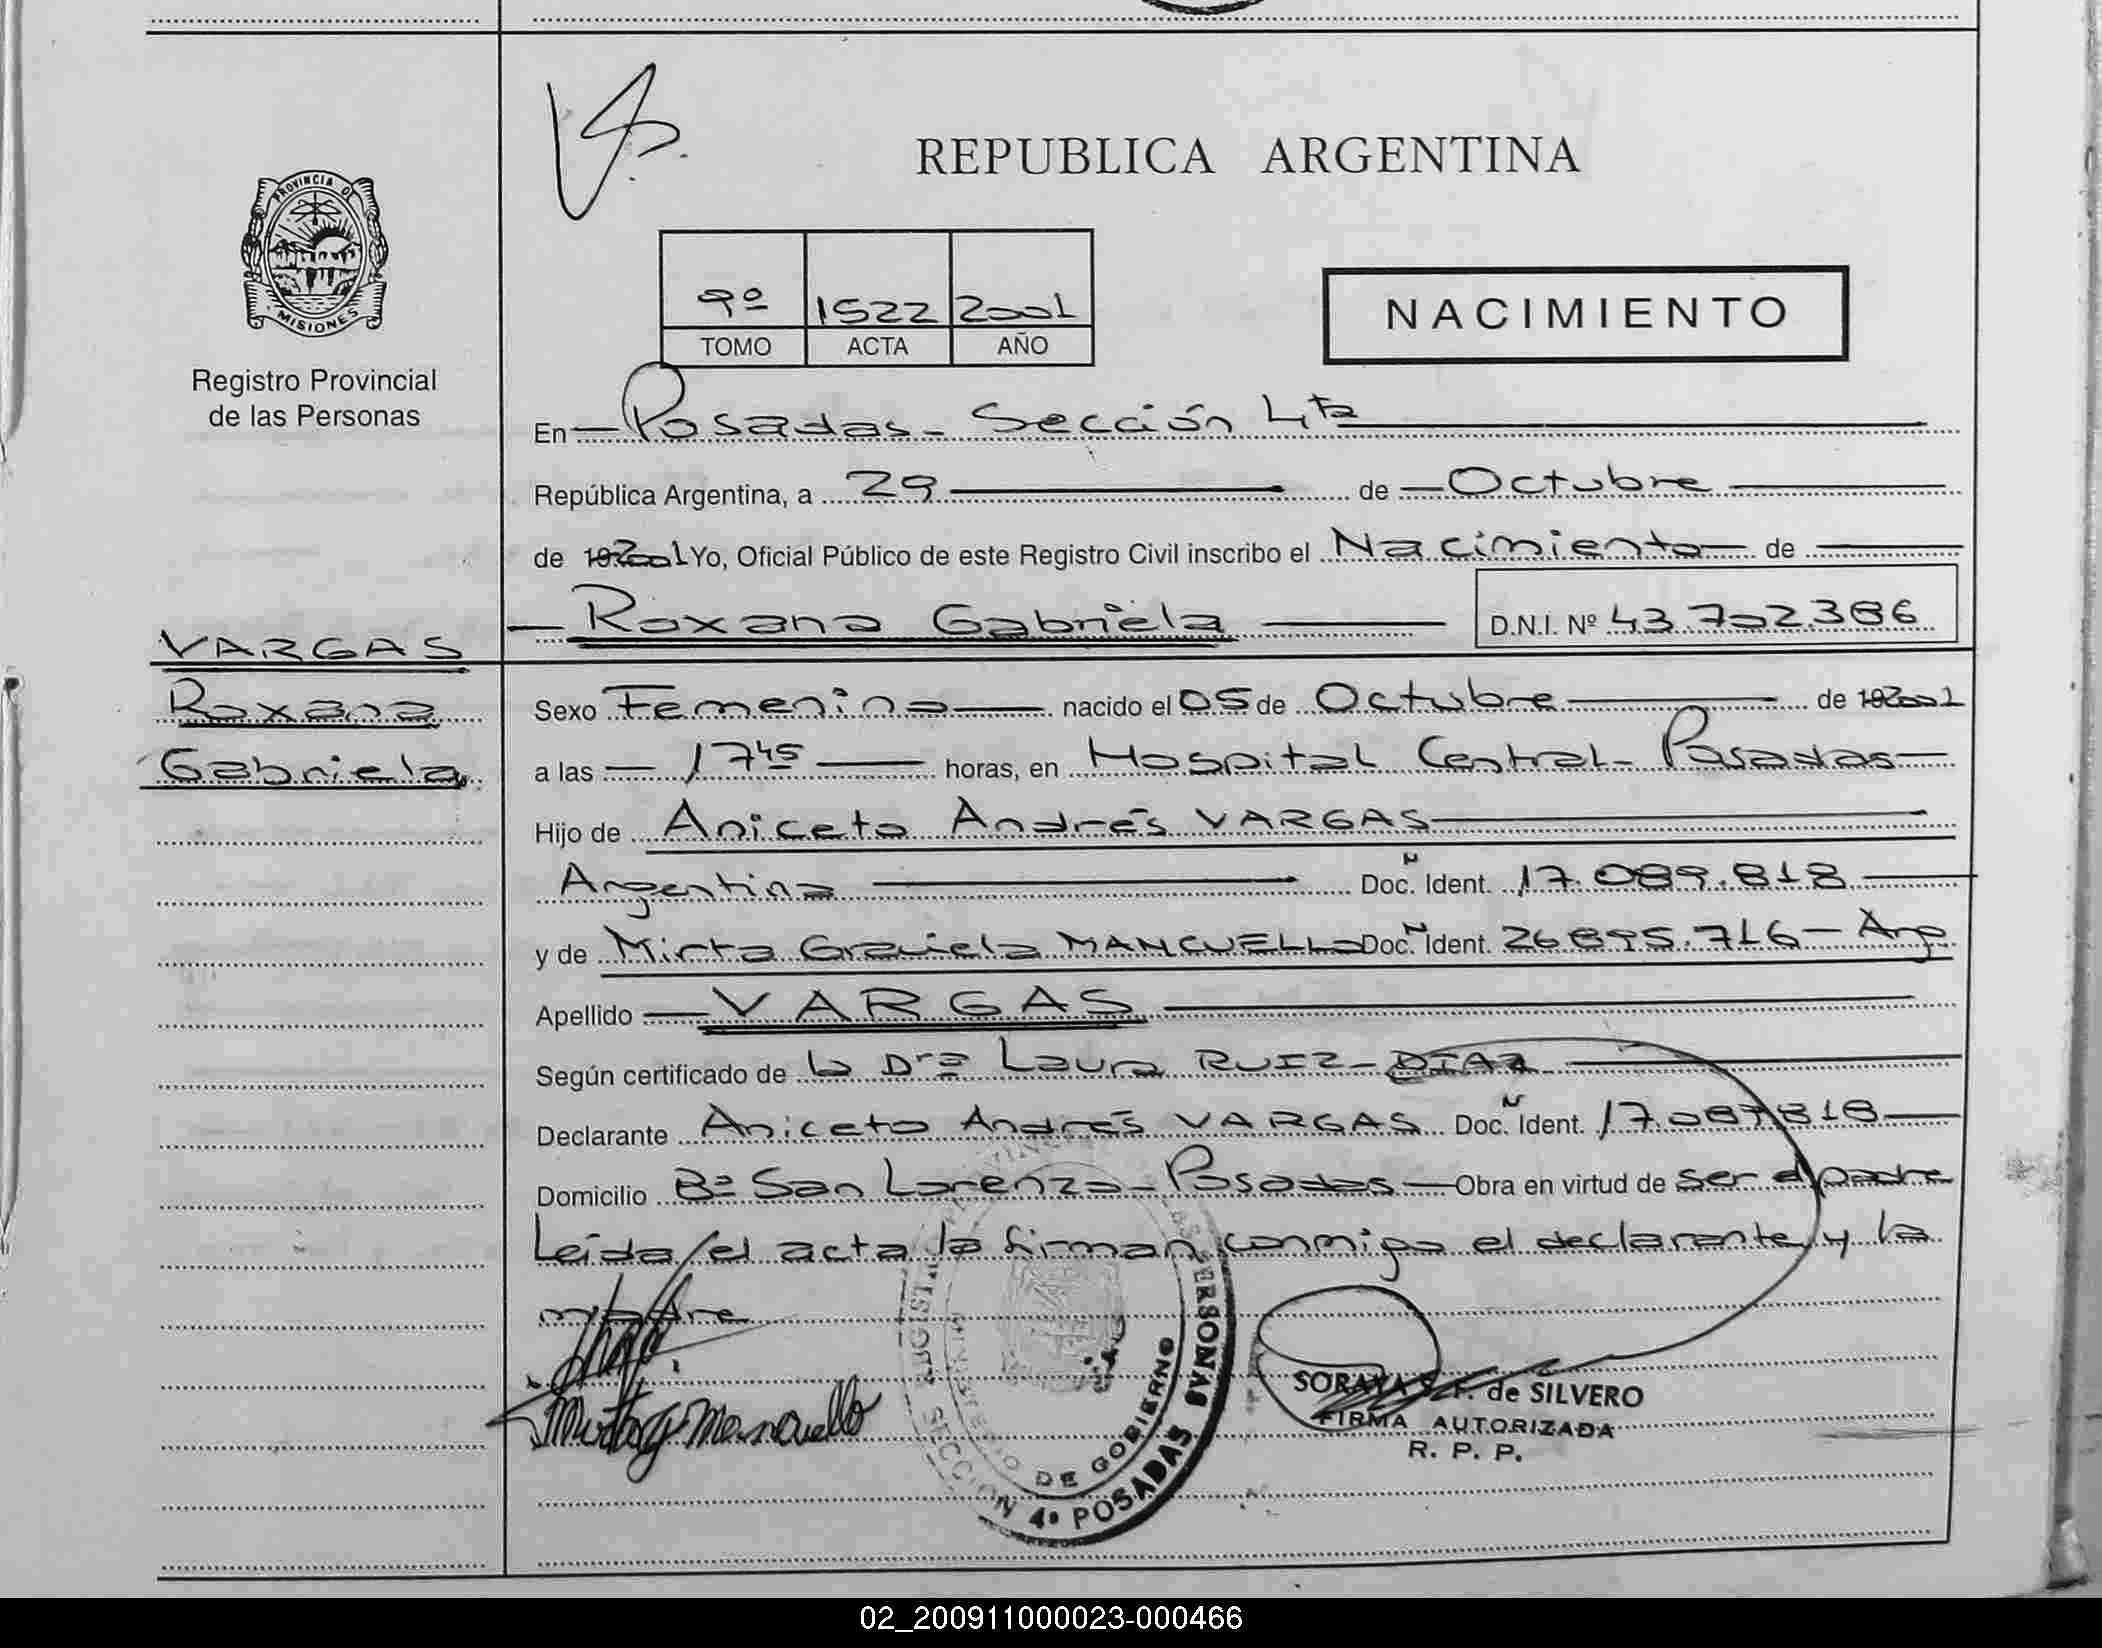 REPUBLICA ARGENTINA
PROVINCIA DE
MISIONES
Registro Provincial
de las Personas
9º 1522 2001
TOMO ACTA AÑO
NACIMIENTO
En Posadas - Sección 4ta
República Argentina, a 29 de Octubre
de 2001 Yo, Oficial Público de este Registro Civil inscribo el Nacimiento de
Roxana Gabriela D.N.I. Nº 43.702.386
VARGAS
Roxana
Gabriela
Sexo Femenino nacido el 05 de Octubre de 2001
a las 17 45 horas, en Hospital Central - Posadas
Hijo de Aniceto Andrés VARGAS
Argentina Doc. Ident. 17.089.818
y de Mirta Graciela MANCUELLO Doc. Ident. 26.895.716 - Arg
Apellido VARGAS
Según certificado de la Dra Laura RUIZ - DIAZ
Declarante Aniceto Andrés VARGAS Doc. Ident. 17.089.818
Domicilio Bº San Lorenzo - Posadas Obra en virtud de ser el padre
Leída el acta la firman conmigo el declarante y la
madre
Mirta G Mancuello
DE GOBIERNO
SECCION 4ª POSADAS
SORAYA S. F. de SILVERO
FIRMA AUTORIZADA
R. P. P.
02_200911000023-000466